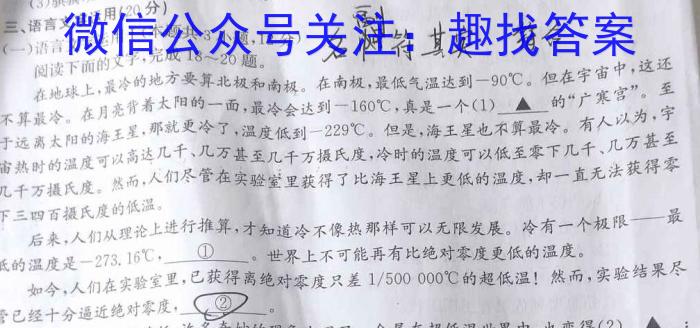 三、语言文 用(20分)
微信公众号关注：趣找答案
(一)语言
阅读下面的文字,完成18~20题。
在地球上,最冷的地方要算北极和南极。在南极,最低气温达到-90℃。但在宇宙中,这还
不算最冷。在月亮背着太阳的一面,最冷会达到-160℃,真是一个(1) ▲ 的“广寒宫”。至
于远离太阳的海王星,那就更冷了,温度低到-229℃。但是,海王星也不算最冷。有人以为,宇
宙热时的温度可以高达几千、几万甚至几千万摄氏度,冷时的温度可以低至零下几千、几万甚至
几千万摄氏度。然而,人们尽管在实验室里获得了比海王星上更低的温度,却一直无法获得零
下三四百摄氏度的低温。
后来,人们从理论上进行推算,才知道冷不像热那样可以无限发展。冷有一个极限——最
低的温度是-273.16℃, ① 。世界上不可能再有比绝对零度更低的温度。
如今,人们在实验室里,已获得离绝对零度只差1/500 000℃的超低温！然而,实验结果尽
管已经十分逼近绝对零度, ② 。